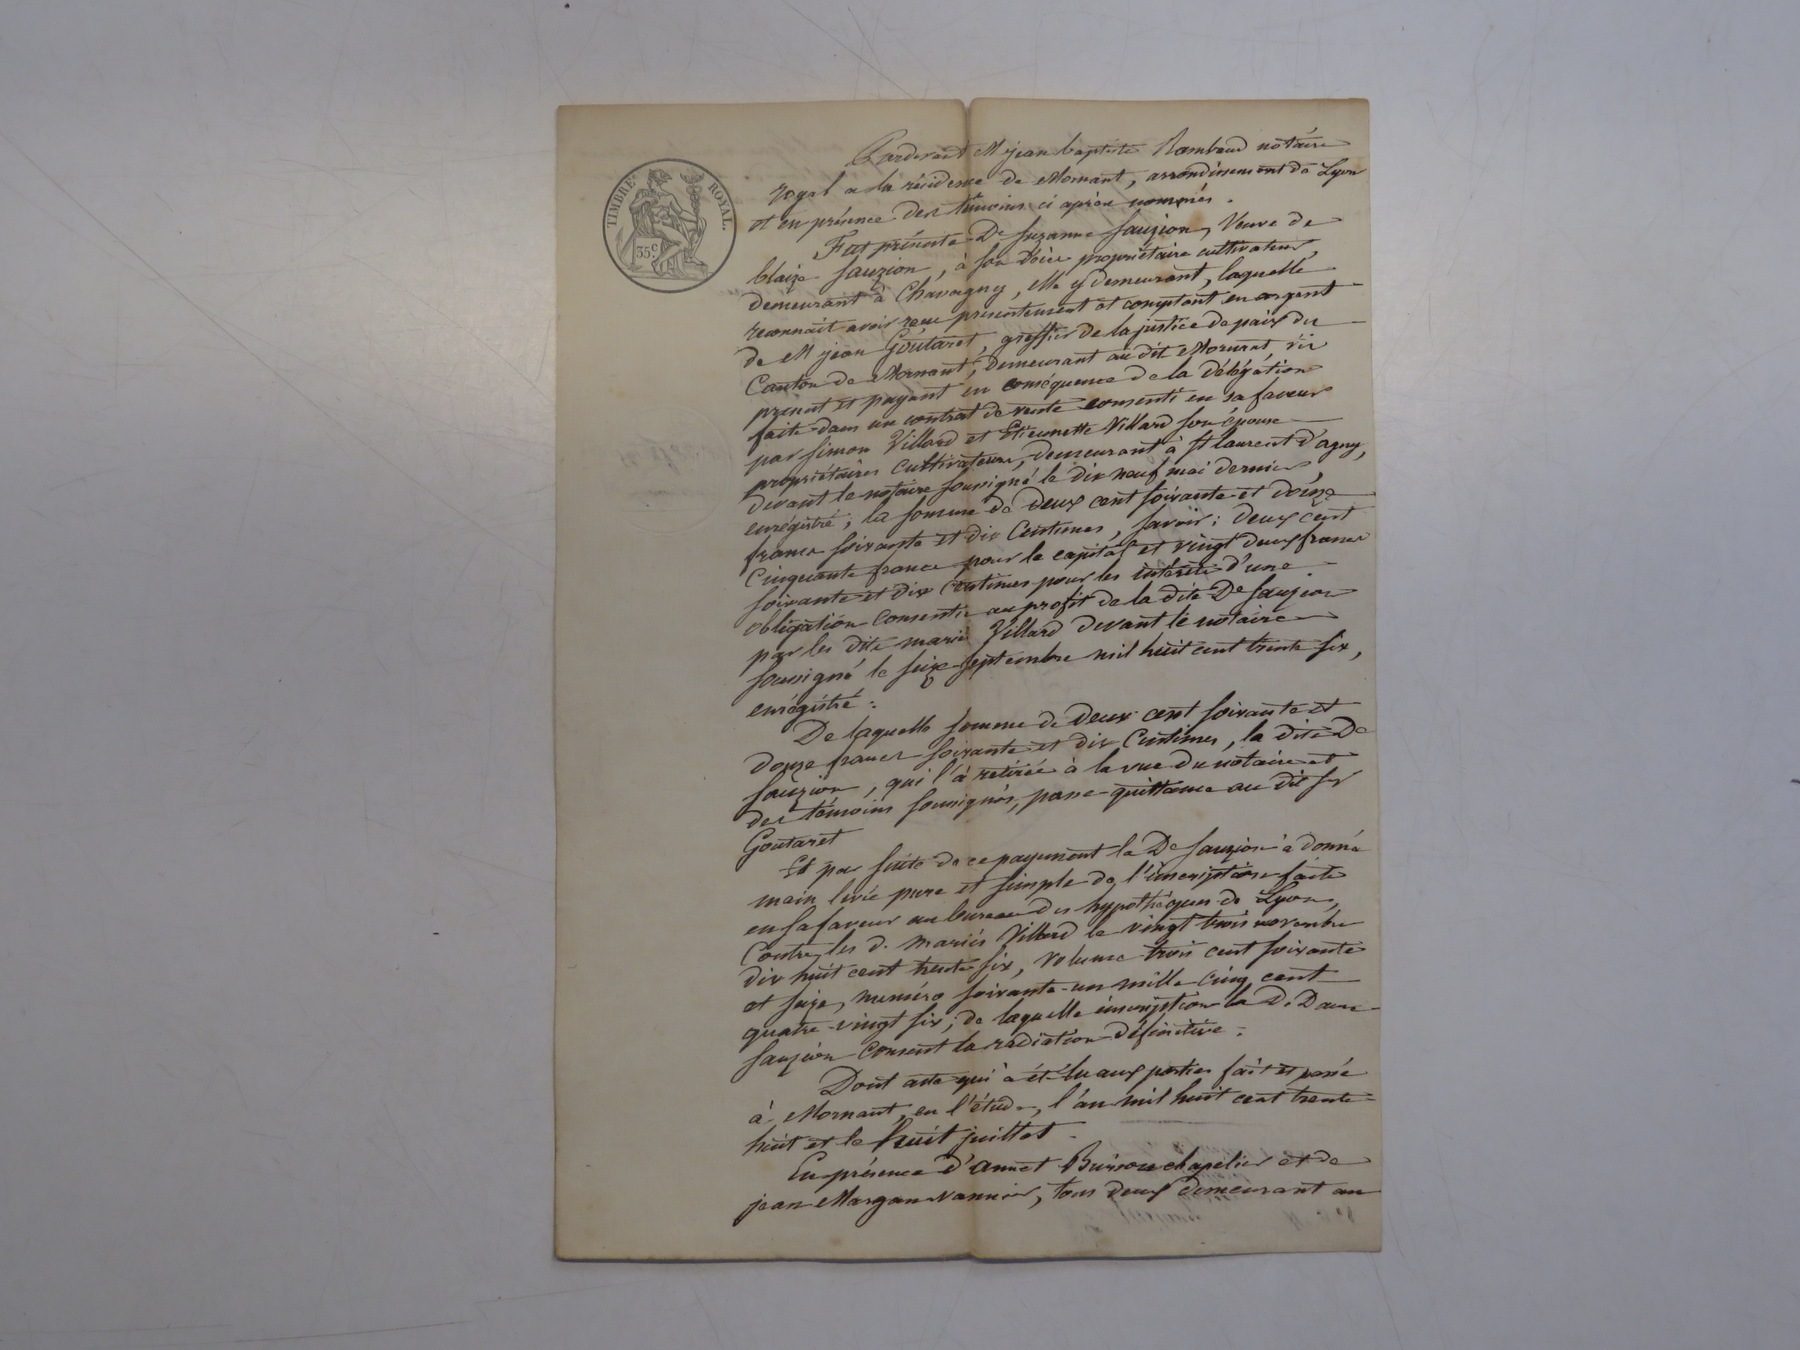 TIMBRE ROYAL.
35 c
Pardevant Me jean baptiste Rambaud notaire
royal a la résidence de Mornant, arrondissement de Lyon
et en présence des témoins ci après nommés.
Fut présente De Suzanne Sauzion, Veuve de
blaize Sauzion, à son décès propriétaire cultivateur,
demeurant à Chavagny, elle y demeurant, laquelle
reconnait avoir reçu présentement et comptant en argent
de Mr jean Goutaret, greffier de la justice de paix du
Canton de Mornant, demeurant au dit Mornant ici
présent et payant en conséquence de la délégation
faite dans un contrat de vente consenti en sa faveur
par Simon Villard et Etiennette Villard son épouse
propriétaires cultivateurs, demeurant à St laurent d'agny,
devant le notaire soussigné le dix neuf mai dernier,
enrégistré, la somme de deux cent soixante et douze
francs soixante et dix Centimes, savoir: deux cent
Cinquante francs pour le capital et vingt deux francs
soixante et dix centimes pour les intérêts d'une
obligation consentie au profit de la dite De Sauzion
par les dits mariés Villard devant le notaire
soussigné le seize septembre mil huit cent trente six,
enrégistré:
De laquelle somme de deux cent soixante et
douze francs soixante et dix Centimes, la dite De
Sauzion, qui l'à retirée à la vue du notaire et
des témoins soussignés, passe quittance au dit Sr
Goutaret
Et par suite de ce payement la De Sauzion à donné
main levée pure et simple de l'inscription faite
en sa faveur au bureau des hypothèques de Lyon,
Contre les d. mariés Villard le vingt trois novembre
dix huit cent trente six, volume trois cent soixante
et seize, numéro soixante-un mille cinq cent
quatre-vingt six; de laquelle inscription la De Dame
Sauzion consent la radiation définitive.
Dont acte qui à été lu aux parties fait et passé
à Mornant, en l'étude, l'an mil huit cent trente
huit et le huit juillet.
En présence d'annet Buisson chapelier et de
jean Margan vannier, tous deux demeurant au